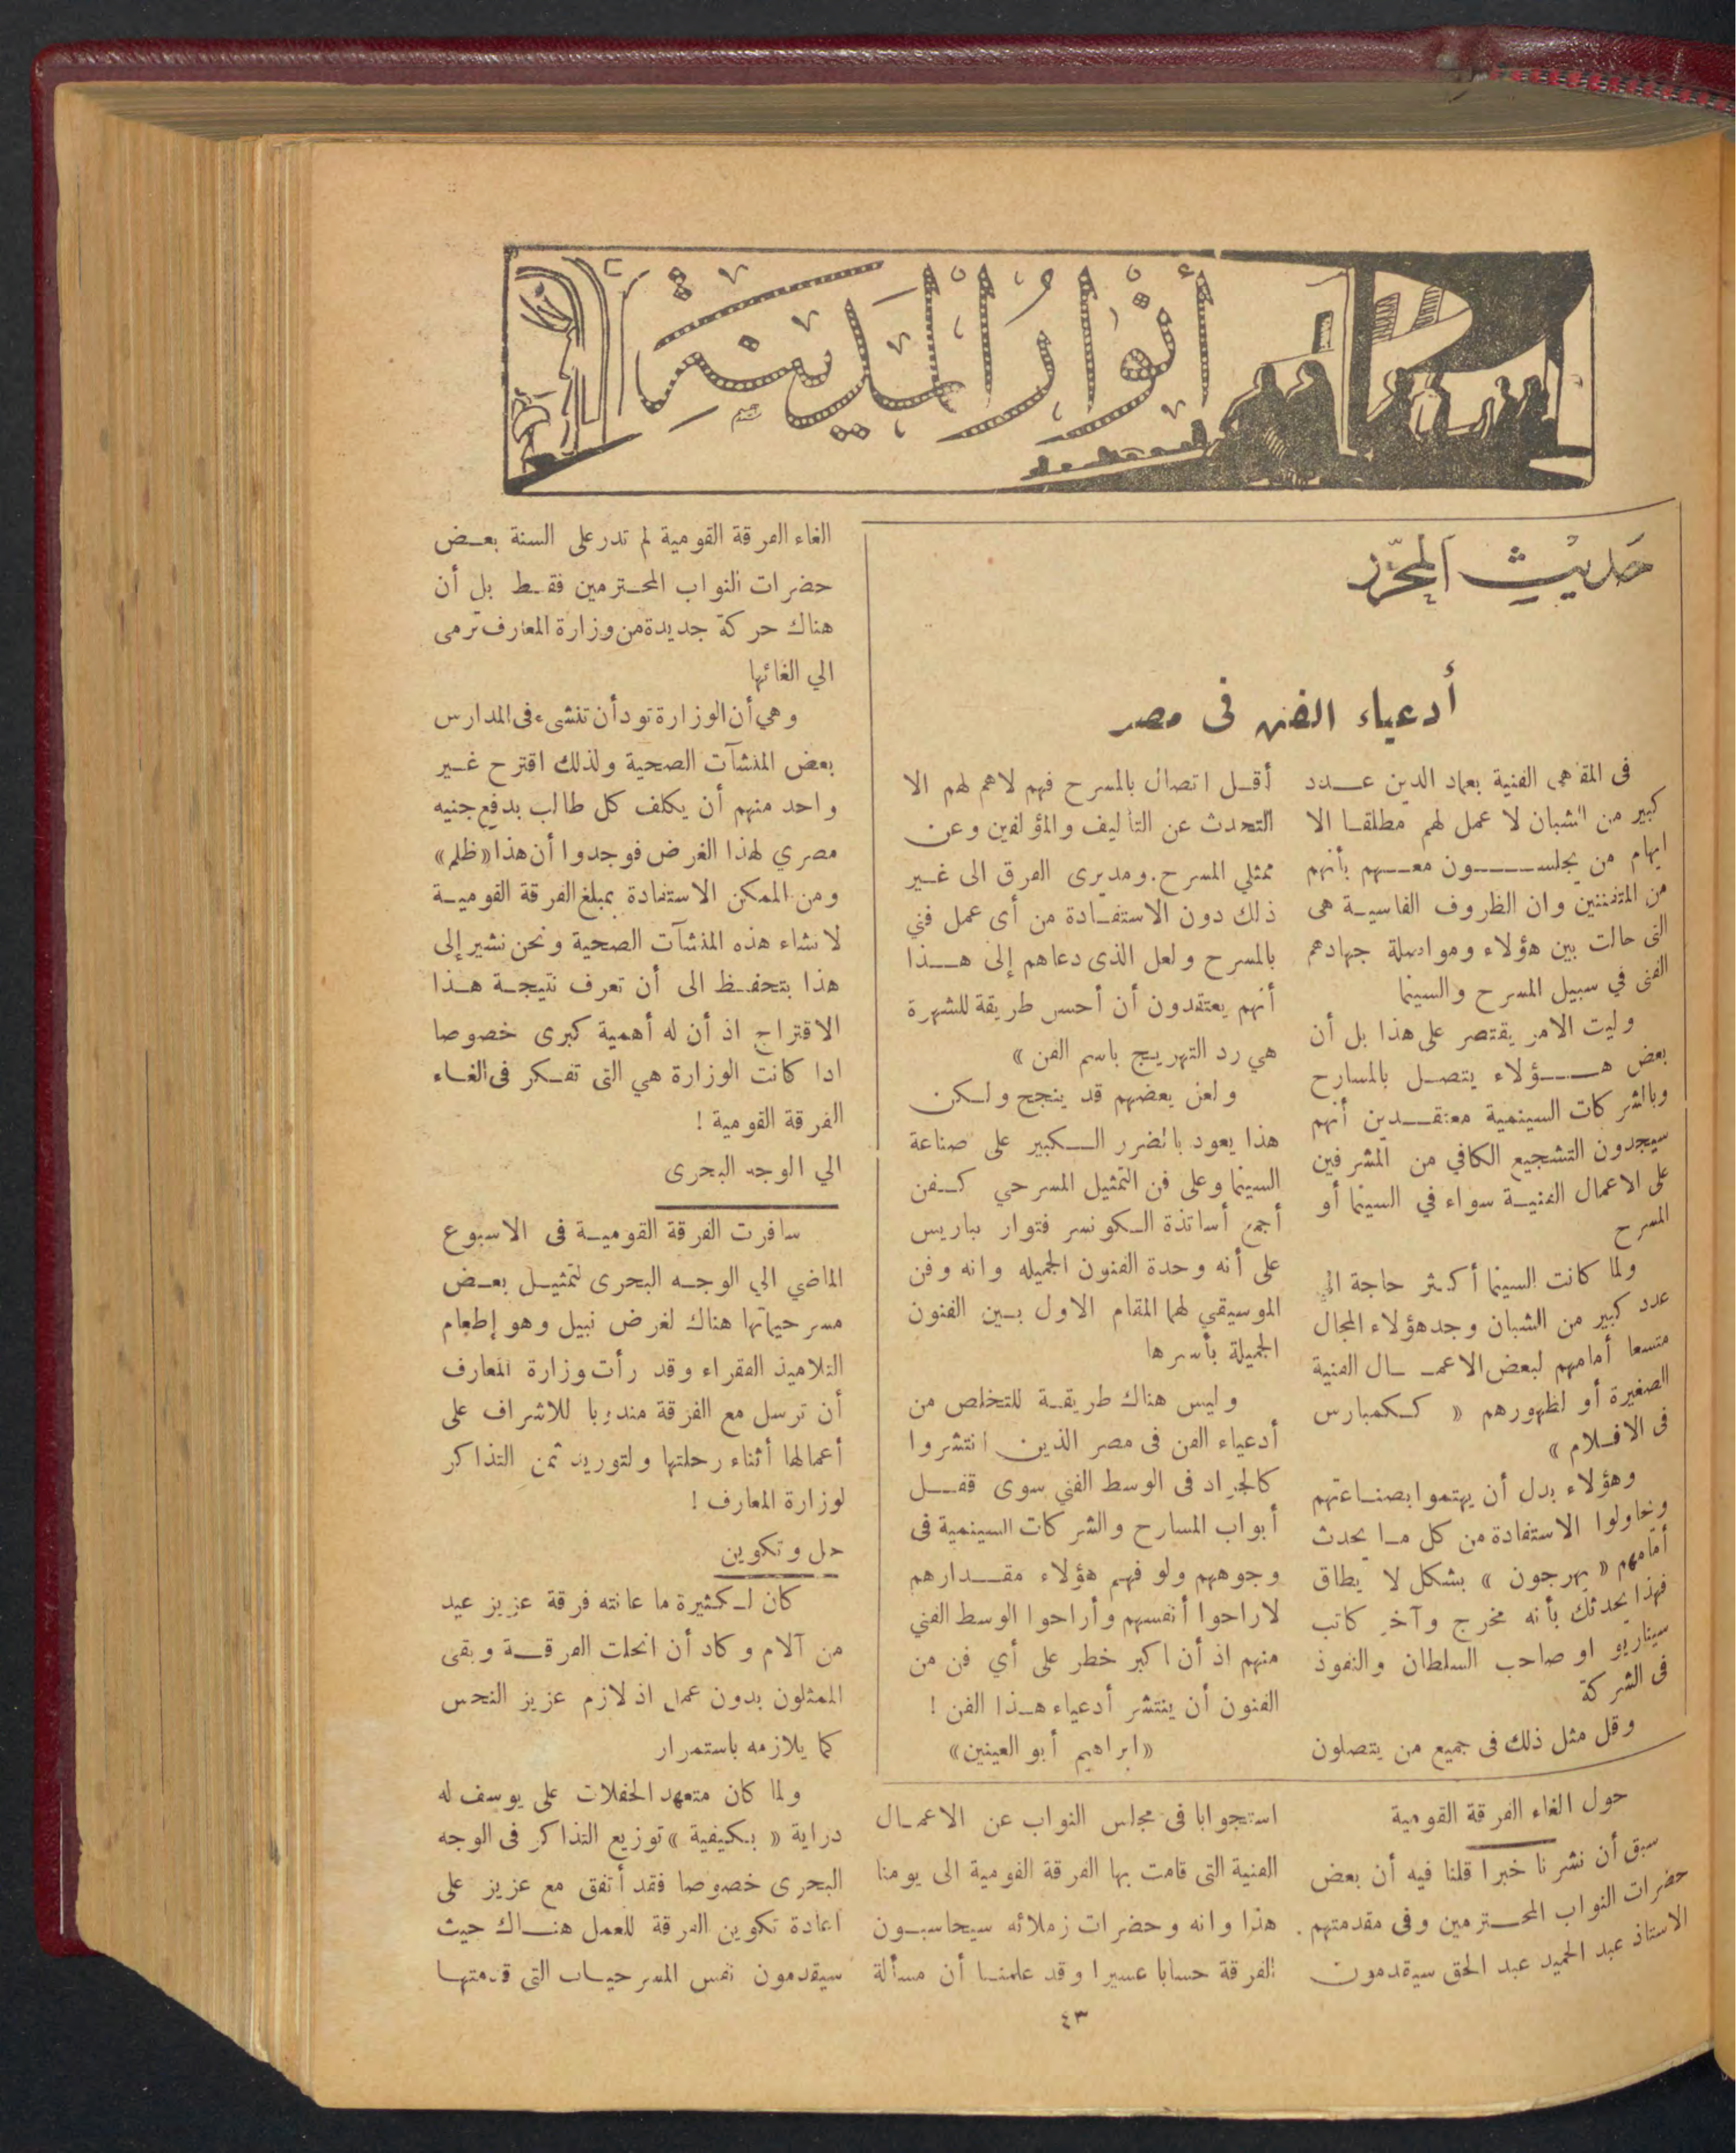 أنوار المدينة
حديث المحرر
أدعياء الفن فى مصر
فى المقاهى الفنية بعماد الدين عـدد
كبير من الشبان لا عمل لهم مطلقا الا
ايهام من يجلسـون معهم بأنهم
من المتفننين وان الظروف القاسية هى
التى حالت بين هؤلاء ومواصلة جهادهم
الفنى في سبيل المسرح والسينما
وليت الامر يقتصر على هذا بل أن
بعض هـؤلاء يتصل بالمسارح
وبالشركات السينمية معتقـدين أنهم
سيجدون التشجيع الكافي من المشرفين
على الاعمال الفنية سواء في السينما أو
المسرح
ولما كانت السينما أكثر حاجة الي
عدد كبير من الشبان وجد هؤلاء المجال
متسعا أمامهم لبعض الاعمـال الفنية
الصغيرة أو لظهورهم « ككمبارس
فى الافلام »
وهؤلاء بدل أن يهتموا بصناعتهم
ويحاولوا الاستفادة من كل ما يحدث
أمامهم « يهرجون » بشكل لا يطاق
فهذا يحدثك بأنه مخرج وآخر كاتب
سيناريو او صاحب السلطان والنفوذ
فى الشركة
وقل مثل ذلك فى جميع من يتصلون
أقـل اتصال بالمسرح فهم لاهم لهم الا
التحدث عن التأليف والمؤلفين وعن
ممثلي المسرح. ومديرى الفرق الى غـير
ذلك دون الاستفـادة من أى عمل فني
بالمسرح ولعل الذى دعاهم إلى هـذا
أنهم يعتقدون أن أحسن طريقة للشهرة
هي رد التهريج باسم الفن »
ولعن بعضهم قد ينجح ولـكن
هذا يعود بالضرر الـكبير على صناعة
السينما وعلى فن التمثيل المسرحي كـفن
أجمع أساتذة الـكونسر فتوار بباريس
على أنه وحدة الفنون الجميله وانه وفن
الموسيقي لهما المقام الاول بـين الفنون
الجميلة بأسرها
وليس هناك طريقـة للتخلص من
أدعياء الفن فى مصر الذين انتشروا
كالجراد فى الوسط الفني سوى قفـل
أبواب المسارح والشركات السينمية فى
وجوههم ولو فهم هؤلاء مقـدارهم
لاراحوا أنفسهم وأراحوا الوسط الفني
منهم اذ أن اكبر خطر على أي فن من
الفنون أن ينتشر أدعياء هـذا الفن !
«ابراهيم أبو العينين»
حول الغاء الفرقة القومية
سبق أن نشرنا خبرا قلنا فيه أن بعض
حضرات النواب المحـترمين وفى مقدمتهم
الاستاذ عبد الحميد عبد الحق سيقدمون
استجوابا فى مجلس النواب عن الاعمـال
الفنية التى قامت بها الفرقة القومية الى يومنا
هذا وانه وحضرات زملائه سيحاسبـون
الفرقة حسابا عسيرا وقد علمنـا أن مسألة
الغاء الفرقة القومية لم تدر على السنة بعـض
حضرات النواب المحـترمين فقـط بل أن
هناك حركة جديدة من وزارة المعارف ترمى
الي الغائها
وهي أن الوزارة تود أن تنشىء فى المدارس
بعض المنشآت الصحية ولذلك اقترح غـير
واحد منهم أن يكلف كل طالب بدفع جنيه
مصري لهذا الغرض فوجدوا أن هذا «ظلم»
ومن الممكن الاستفادة بمبلغ الفرقة القوميـة
لانشاء هذه المنشآت الصحية ونحن نشير إلى
هذا بتحفـظ الى أن تعرف نتيجـة هـذا
الاقتراح اذ أن له أهمية كبرى خصوصا
اذا كانت الوزارة هي التى تفـكر فى الغـاء
الفرقة القومية !
الي الوجه البحرى
سافرت الفرقة القوميـة فى الاسبوع
الماضي الي الوجـه البحرى لتمثيـل بعـض
مسرحياتها هناك لغرض نبيل وهو إطعام
التلاميذ الفقراء وقد رأت وزارة المعارف
أن ترسل مع الفرقة مندوبا للاشراف على
أعمالها أثناء رحلتها ولتوريد ثمن التذاكر
لوزارة المعارف !
حل وتكوين
كان لـكثيرة ما عانته فرقة عزيز عيد
من آلام وكاد أن انحلت الفرقـة وبقى
الممثلون بدون عمل اذ لازم عزيز النحس
كما يلازمه باستمرار
ولما كان متعهد الحفلات على يوسف له
دراية « بـكيفية » توزيع التذاكر فى الوجه
البحرى خصوصا فقد أتفق مع عزيز على
اعادة تكوين الفرقة للعمل هنـاك حيث
سيقدمون نفس المسرحيـات التى قدمتهـا
٤٣